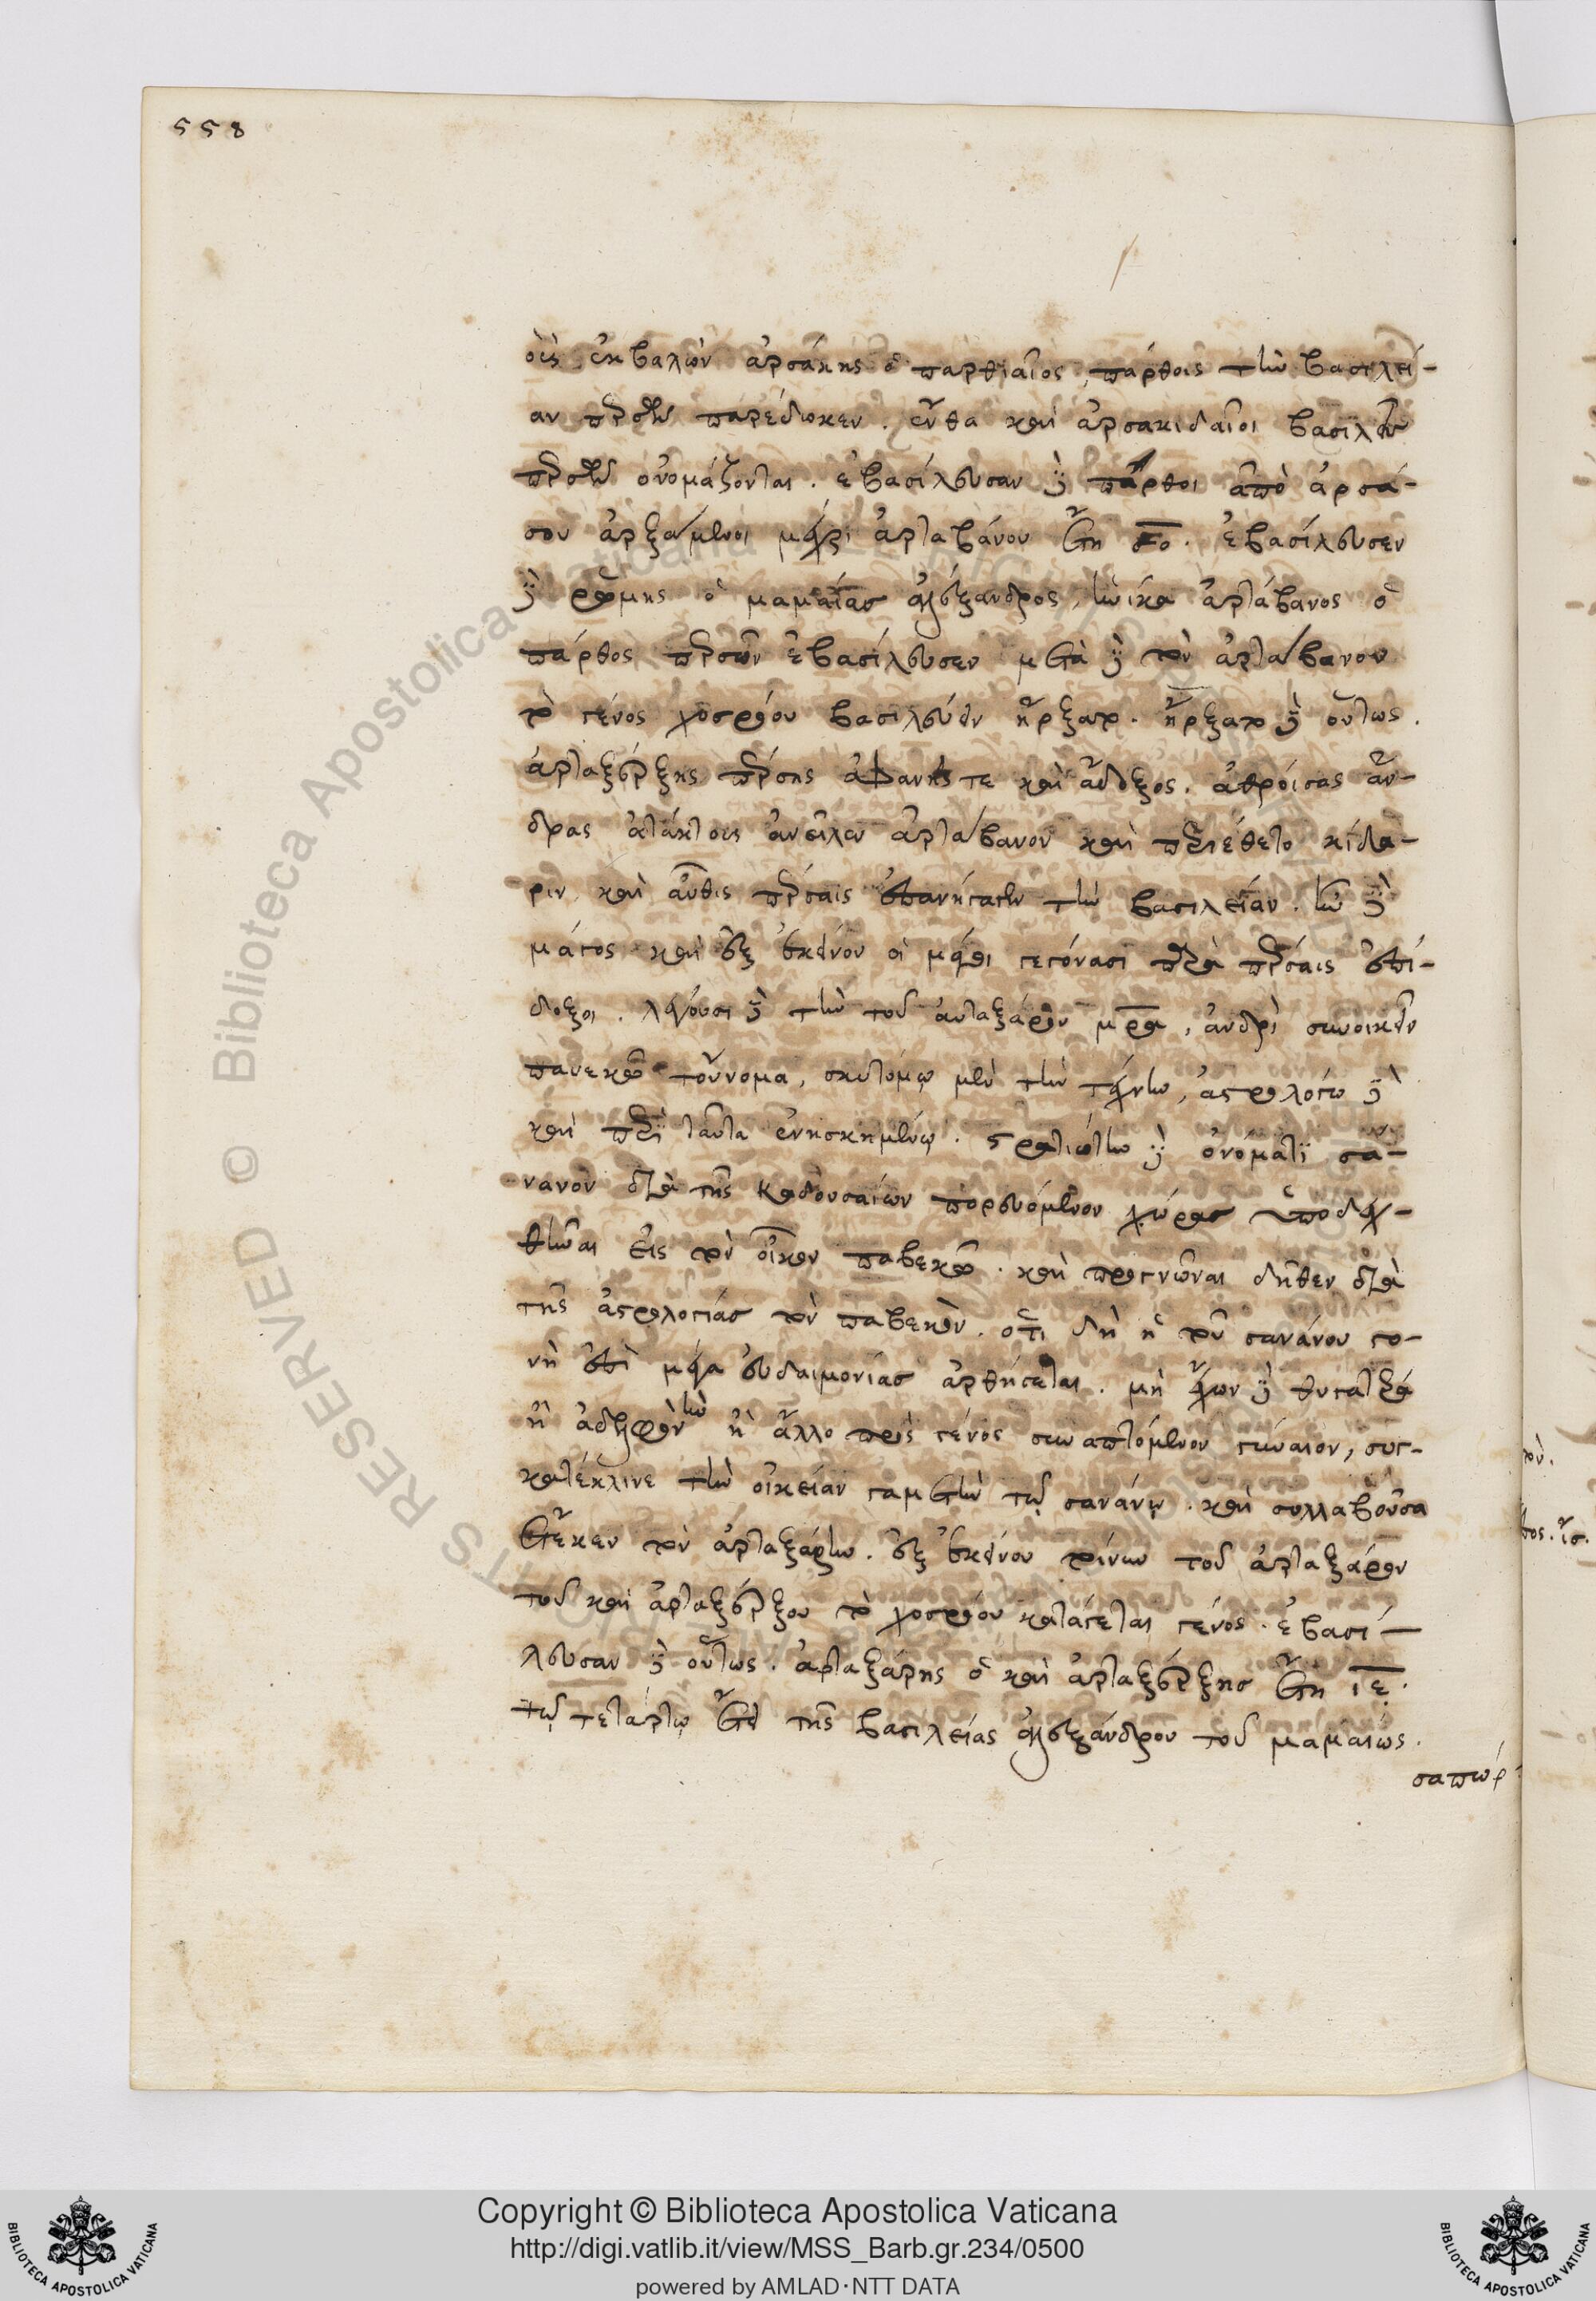 558
οὓς ἐκβαλὼν ἀρσάκης ὁ παρθιαῖος, πάρθοις τὴν βασιλεί-
αν περσῶν παρέδωκεν. ἔνθα καὶ ἀρσακιδαῖοι βασιλεῖς
περσῶν ὀνομάζονται. ἐβασίλευσαν δὲ πάρθοι ἀπὸ ἀρσά-
κου ἀρξάμενοι μέχρι ἀρταβάνου ἔτη σο. ἐβασίλευσεν
δὲ ῥώμης ὁ μαμαίας ἀλέξανδρος, ἡνίκα ἀρτάβανος ὁ
πάρθος περσῶν ἐβασίλευσεν μετὰ δὲ τὸν ἀρτάβανον
τὸ γένος χοσρόου βασιλεύειν ἤρξατο. ἤρξατο δὲ οὕτως.
ἀρταξέρξης πέρσης ἀφανής τε καὶ ἄδοξος. ἀθροίσας ἄν-
δρας ἀτάκτους ἀνεῖλεν ἀρτάβανον καὶ περιέθετο κίδα-
ριν καὶ αὖθις πέρσαις ἐπανήγαγεν τὴν βασιλείαν. ἦν δὲ
μάγος καὶ ἐξ ἐκείνου οἱ μάγοι γεγόνασι παρὰ πέρσαις ἐπί-
δοξοι. λέγουσι δὲ τὴν τοῦ ἀρταξάρου μητέρα, ἀνδρὶ συνοικεῖν
παυεκῶ τοὔνομα, σκυτόμῳ μὲν τὴν τέχνην, ἀστρολόγω δὲ
καὶ περὶ ταῦτα ἐνησκημένῳ. στρατιώτην δὲ ὀνόματι σα-
νανον διὰ τῆς καδουσαίων πορευόμενον χώρας ὑποδεχ-
θῆναι εἰς τὸν οἶκον παβεκῶ. καὶ προγνῶναι δῆθεν διὰ
τῆς ἀστρολογίας τὸν παβεκὸν. ὅτι δὴ ἡ τοῦ σανάνου γο-
νὴ ἐπὶ μέγα εὐδαιμονίας ἀρθήσεται. μὴ ἔχων δὲ θυγατέρα
ἢ ἀδελφὴν ἢ ἄλλο πρὸς γένος συναπτόμενον γύναιον, συγ-
κατέκλινε τὴν οἰκείαν γαμετὴν τῷ σανάνῳ. καὶ συλλαβοῦσα
ἔτεκεν τὸν ἀρταξάρην. ἐξ ἐκείνου τοίνυν τοῦ ἀρταξάρου
τοῦ καὶ ἀρταξέρξου τὸ χοσρόου κατάγεται γένος. ἐβασί-
λευσαν δὲ οὕτως. ἀρταξάρης ὁ καὶ ἀρταξέρξης ἔτη ιε.
τῷ τετάρτῳ ἔτει τῆς βασιλείας ἀλεξάνδρου τοῦ μαμαίως.
σαπώρ
Copyright © Biblioteca Apostolica Vaticana
http://digi.vatlib.it/view/MSS_Barb.gr.234/0500
powered by AMLAD·NTT DATA